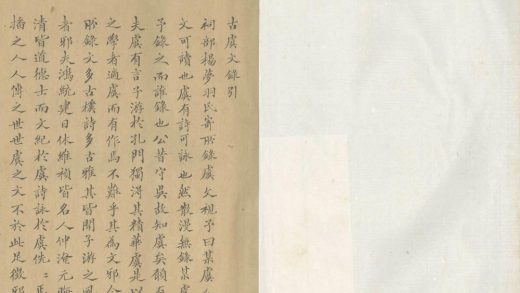 古虞文錄引
祠部楊夢羽氏寄所錄虞文視予曰某虞
文可讀也虞有詩可詠也然散漫無錄某
予錄之而誰錄也公昔守吳故知虞矣願
夫虞有言子游於孔門獨得其精華虞是以
之學者過虞而有作焉不難乎其為文邪
所錄文多古樸詩多古雅其皆聞子游之風
者邪夫鴻統建日休維禎皆名人仲淹元晦
清皆道德士而文紀於虞詩詠於虞俛
播之人人傳之世世虞之文不於此足徵邪